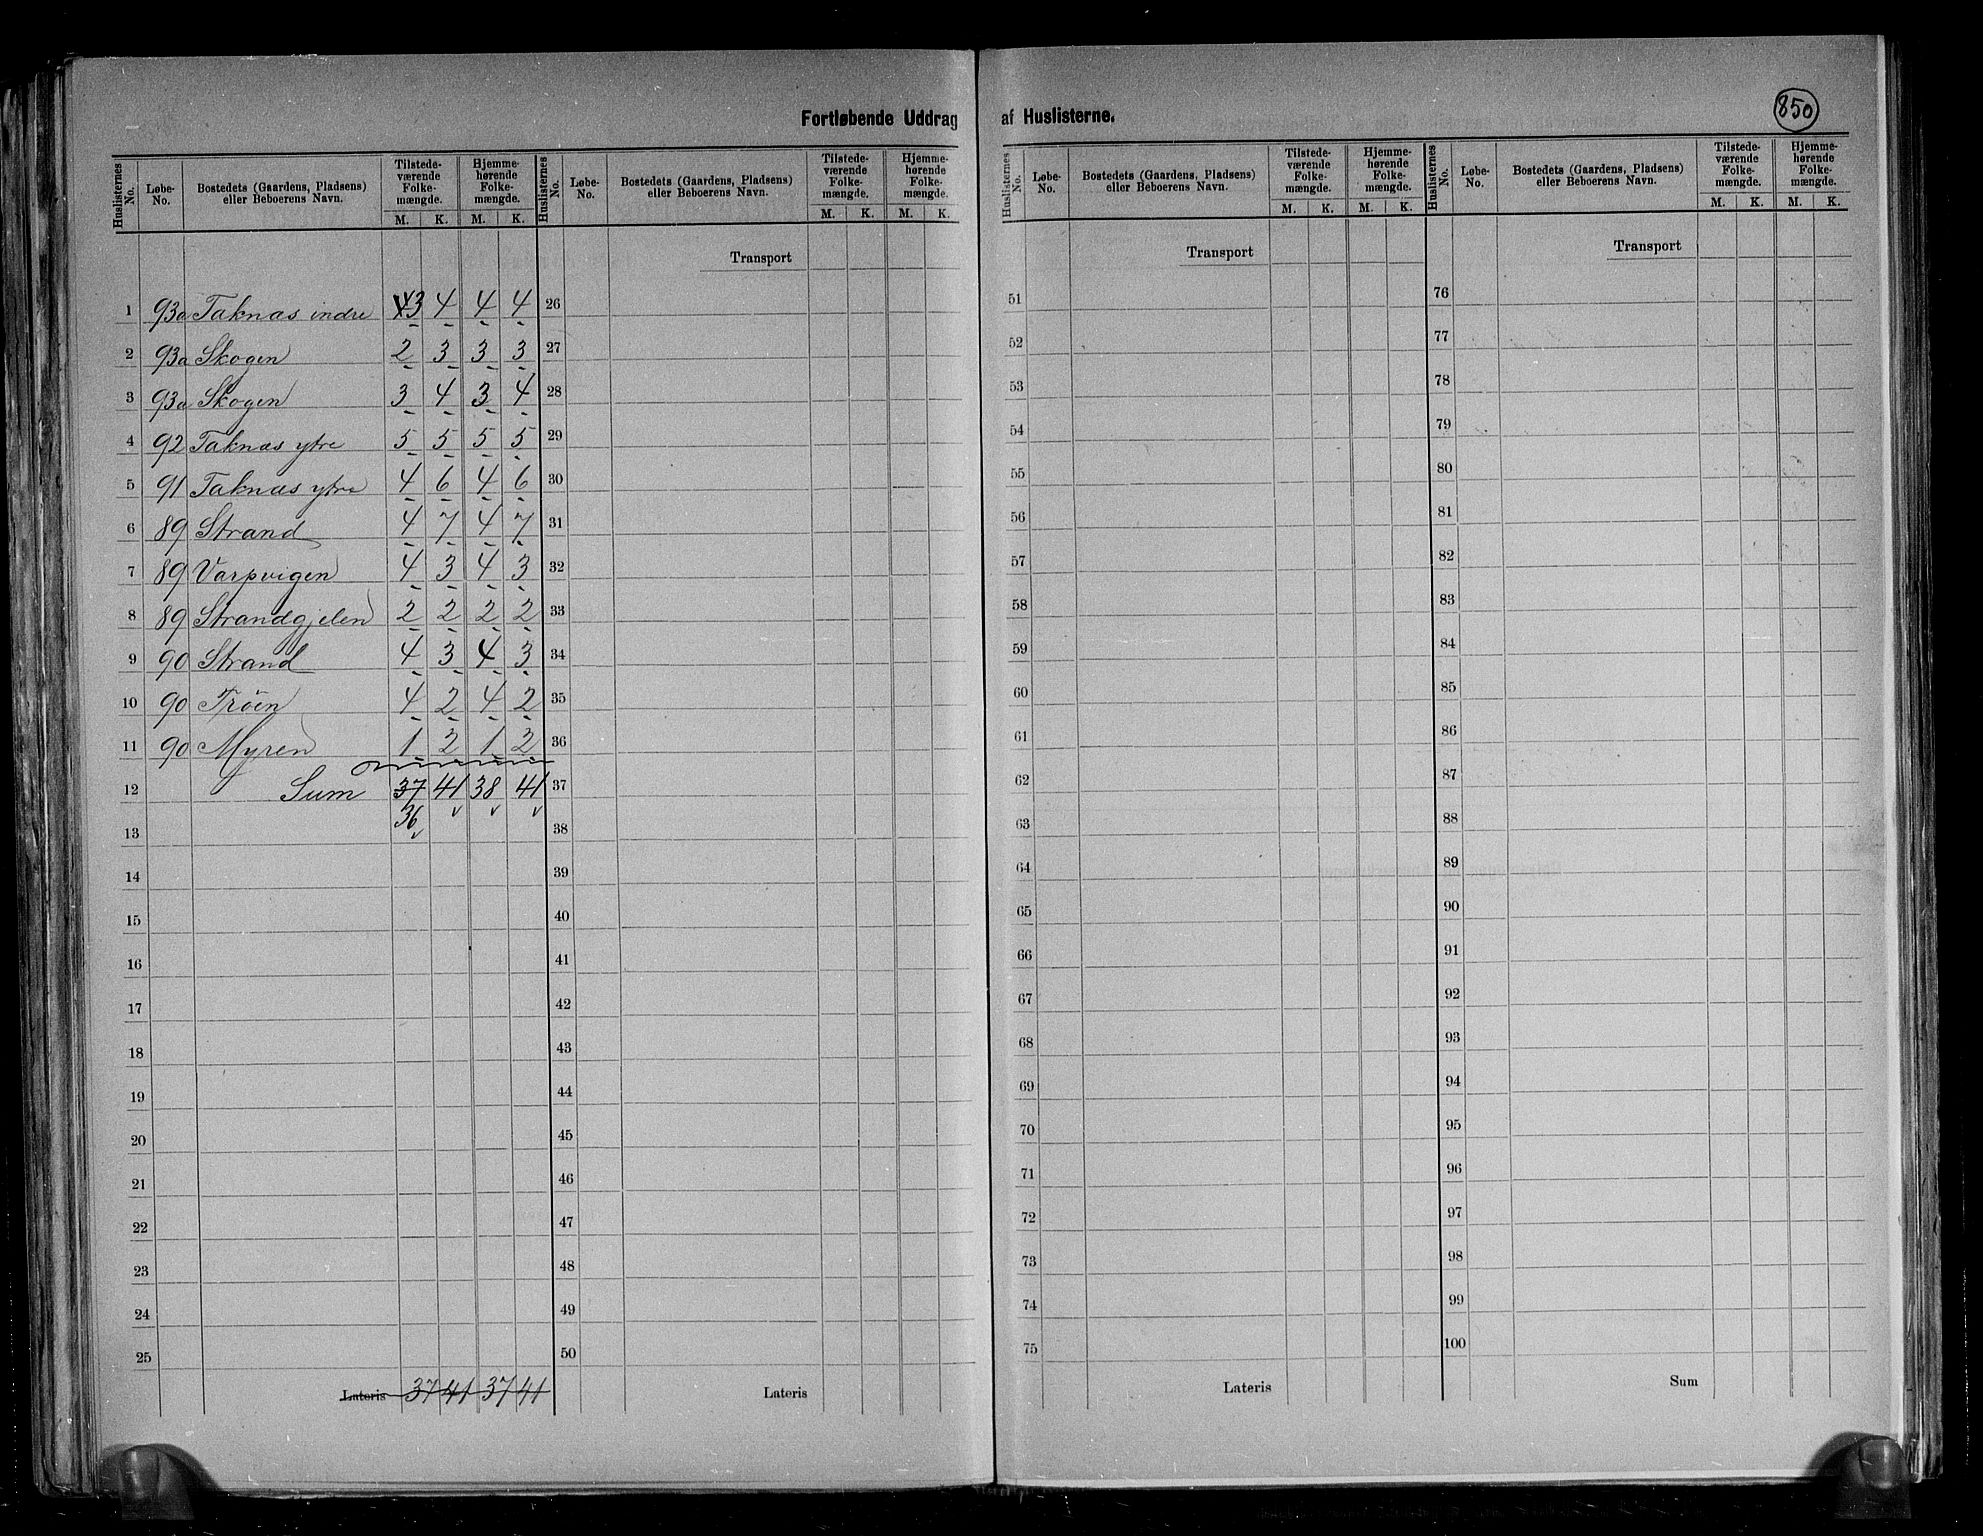 Fortløbende Uddrag af Huslisterne.
850
Huslisternes No. | Løbe-No. | Bostedets (Gaardens, Pladsens) eller Beboerens Navn. | Tilstedeværende Folkemængde. M. K. | Hjemmehørende Folkemængde. M. K.
1 93a Taknæs indre 4 3 4 4 4
2 93a Skogen 2 3 3 3
3 93a Skogen 3 4 3 4
4 92 Taknæs ytre 5 5 5 5
5 91 Taknæs ytre 4 6 4 6
6 89 Strand 4 7 4 7
7 89 Varpvigen 4 3 4 3
8 89 Strandgjelen 2 2 2 2
9 90 Strand 4 3 4 3
10 90 Tröen 4 2 4 2
11 90 Myren 1 2 1 2
12 Sum 37 41 38 41
13 36
14
15
16
17
18
19
20
21
22
23
24
25
Lateris 37 41 37 41
Huslisternes No. | Løbe-No. | Bostedets (Gaardens, Pladsens) eller Beboerens Navn. | Tilstedeværende Folkemængde. M. K. | Hjemmehørende Folkemængde. M. K.
Transport
26
27
28
29
30
31
32
33
34
35
36
37
38
39
40
41
42
43
44
45
46
47
48
49
50
Lateris
Huslisternes No. | Løbe-No. | Bostedets (Gaardens, Pladsens) eller Beboerens Navn. | Tilstedeværende Folkemængde. M. K. | Hjemmehørende Folkemængde. M. K.
Transport
51
52
53
54
55
56
57
58
59
60
61
62
63
64
65
66
67
68
69
70
71
72
73
74
75
Lateris
Huslisternes No. | Løbe-No. | Bostedets (Gaardens, Pladsens) eller Beboerens Navn. | Tilstedeværende Folkemængde. M. K. | Hjemmehørende Folkemængde. M. K.
Transport
76
77
78
79
80
81
82
83
84
85
86
87
88
89
90
91
92
93
94
95
96
97
98
99
100
Sum